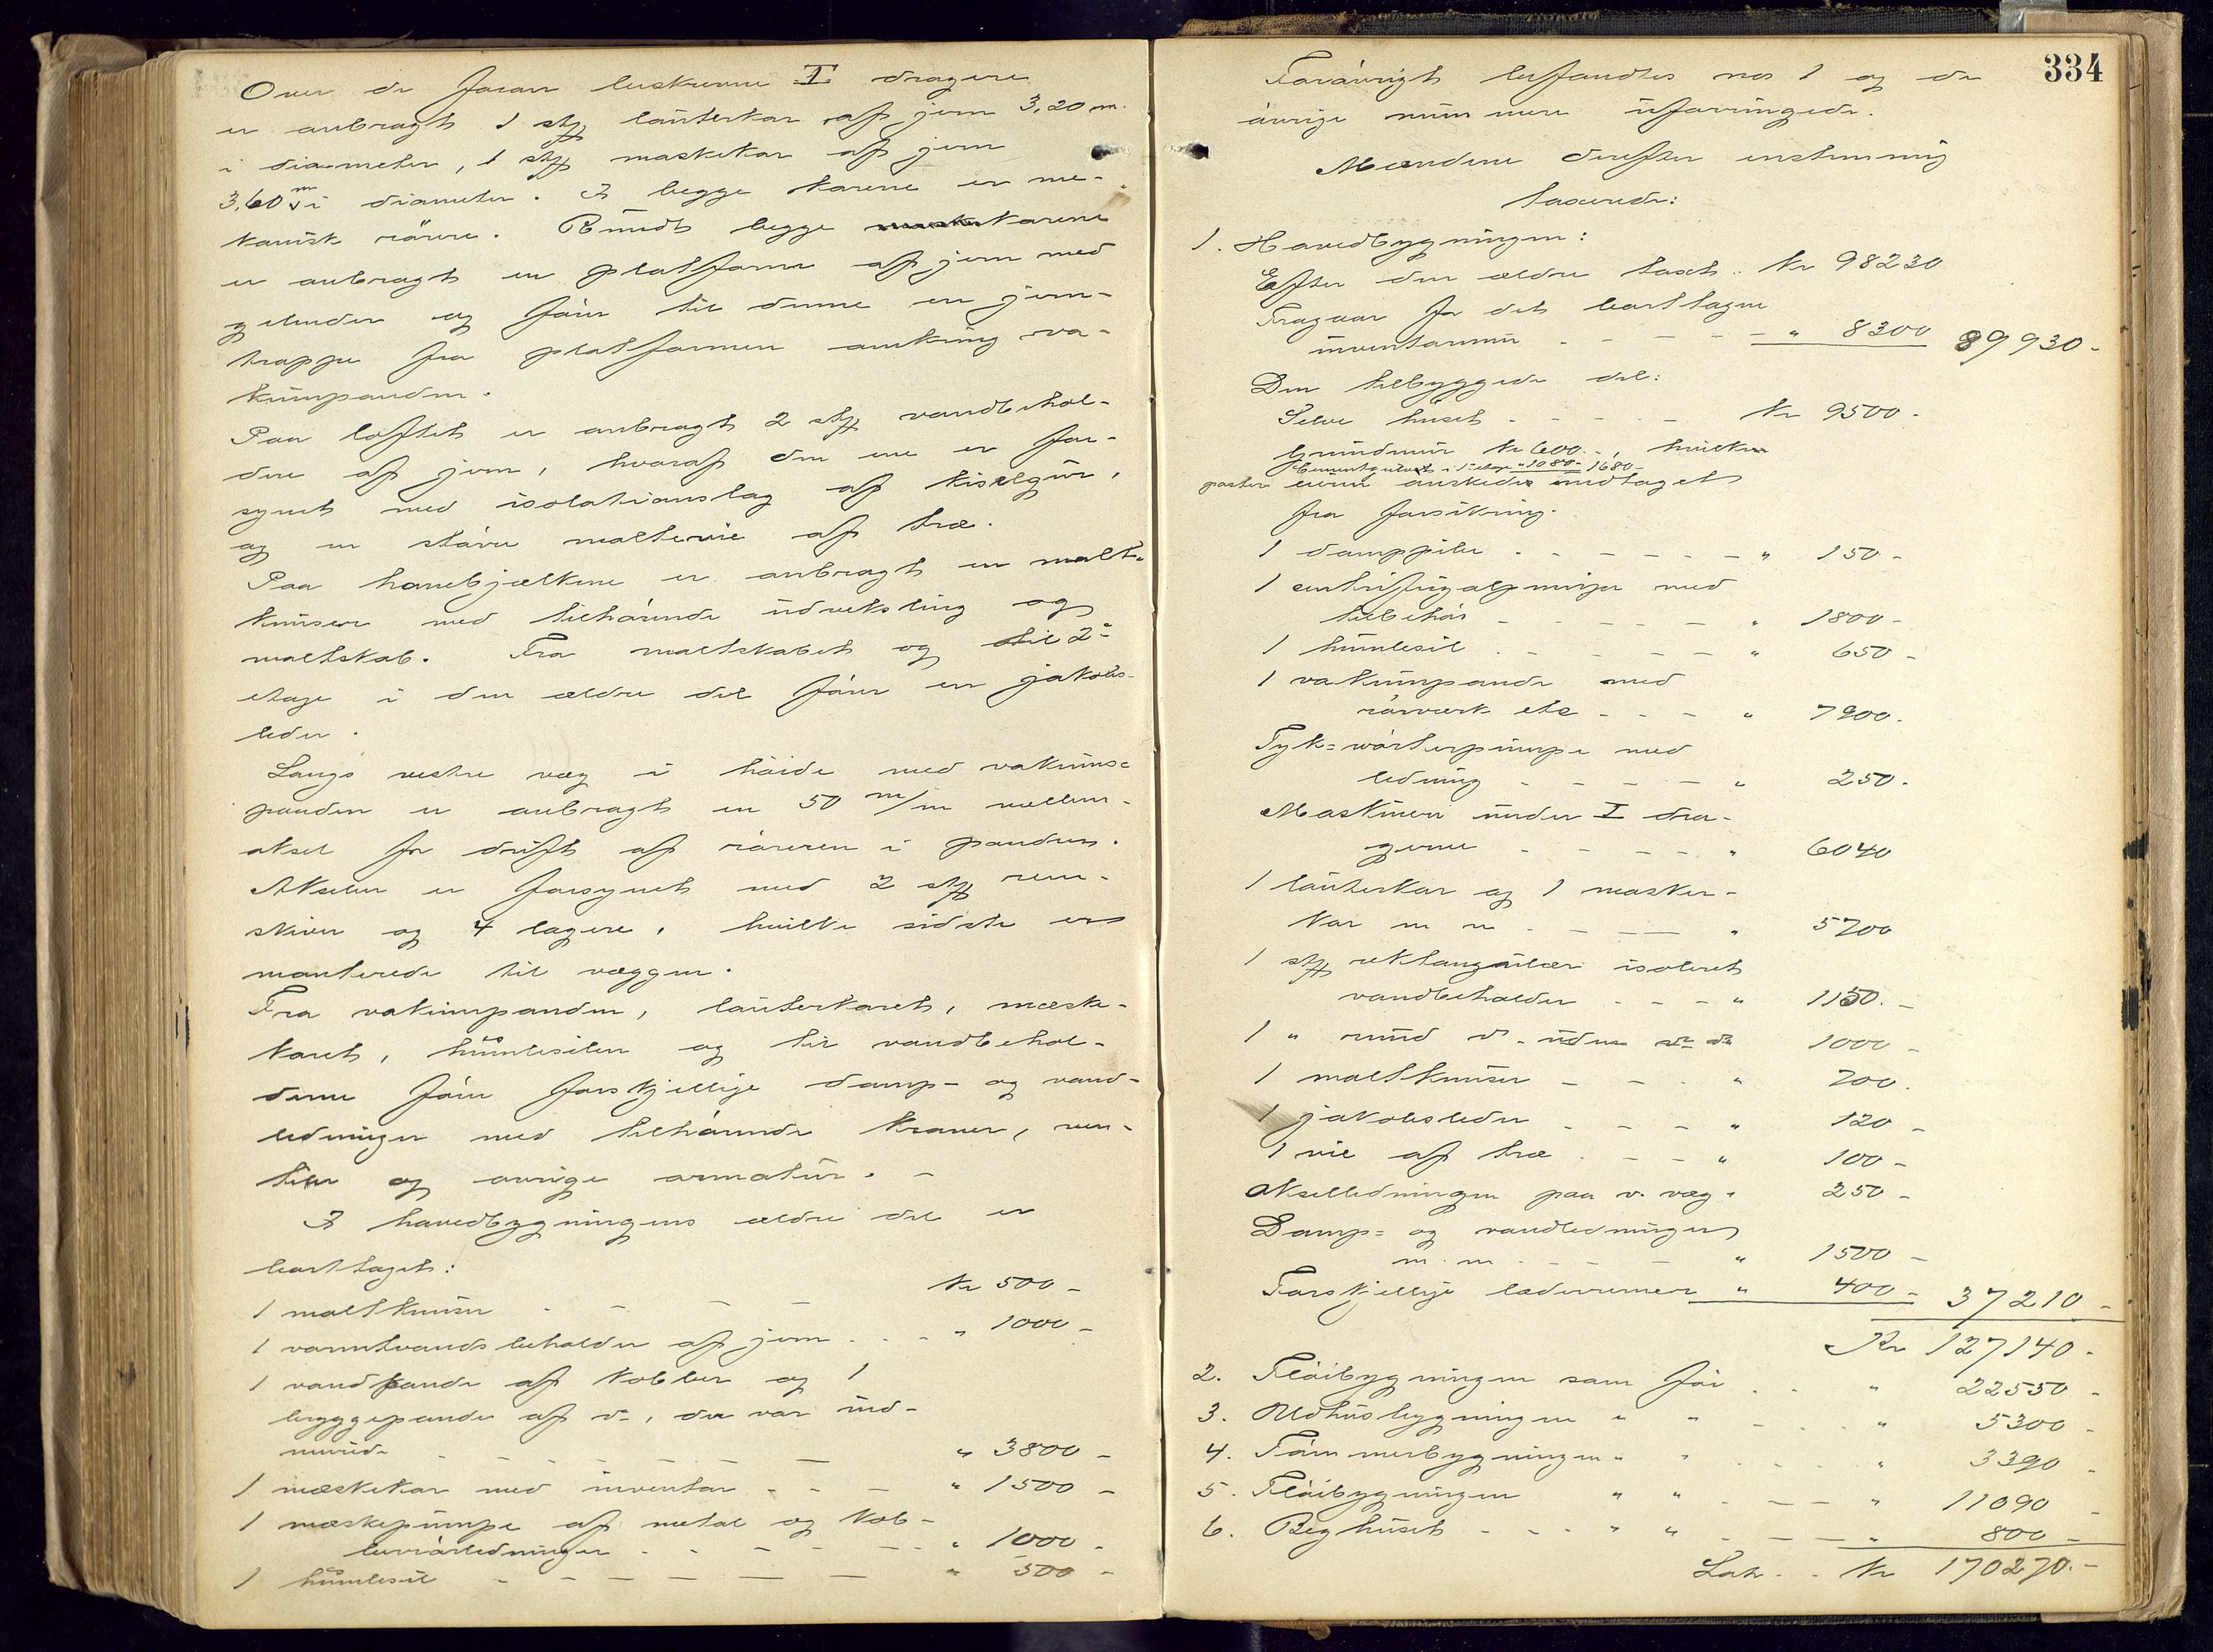 Over de foran beskrevne I dragere
er anbragt 1 stk lauterkar af jern 3,20 m.
i diameter, 1 stk maskekar af jern
3,60 m i diameter. I begge karene er me-
kanisk rörere. Rundt begge karene
er anbragt en platform af jern med
gelender og förer til denne en jern-
trappe fra platformen omkring va-
kumpanden.
Paa loftet er anbragt 2 stk vandbehol-
dere af jern, hvoraf den ene er for-
synet med isolationslag af kiselgur,
og en större maltsie af træ.
Paa hanebjælkene er anbragt en malt-
knuser med tilhörende udveksling og
maltskab. Fra maltskabet og til 2den
etage i den ældre del förer en jakobs-
leder.
Langs vestre væg i höide med vakums-
panden er anbragt en 50 m/m mellem-
aksel for drift af röreren i panden.
Akselen er forsynet med 2 stk rem-
skiver og 4 lagere, hvilke sidste er
monterede til væggen.
Fra vakumpanden, lauterkaret, mæske-
karet, humlesilen og til vandbehol-
derne förer forskjellige damp- og vand-
ledninger med tilhörende kraner, ven-
tiler og övrige armatur. -
I hovedbygningens ældre del er
borttaget:
1 maltknuser - - - - Kr 500 -
1 varmtvandsbeholder af jern . . - " 1000 -
1 vandpande af kobber og 1
bryggepande af do, der var ind-
murede - - - - - - " 3800 -
1 mæskekar med inventar - - - " 1500 -
1 mæskepumpe af metal og kob-
berrörledninger . - - - - - " 1000 -
1 humlesil - - - - - - " 500 -
334
Forövrigt befandtes no 1 og de
övrige nummere uforringede.
Mændene derefter enstemmig
taxerede:
1. Hovedbygningen:
Efter den ældre taxt .. Kr 98230
Fragaar for det borttagne
inventarium - - - - - " 8300 89930 -
Den tilbyggede del:
Selve huset - - - - - Kr 9500 -
Grundmur Kr 600.-, hvilken
Cementgulvet i 1 etage " 1080 - 1680 -
poster eieren önskede undtaget
fra forsikring.
1 damppibe . - - - - - " 150 -
1 centrifugalpumpe med
tilbehör - - - - - " 1800 -
1 humlesil . - - - - - " 650 -
1 vakumpande med
rörværk etc - - - " 7900 -
Tyk-wörterpumpe med
ledning - - - - - " 250 -
Maskineri under I dra-
gerne - - - - - " 6040
1 lauterkar og 1 maske-
kar m m - - - - " 5700
1 stk rektangulær isoleret
vandbeholder - - - " 1150 -
1 " rund do uden do do 1000 -
1 maltknuser - - - " 200 -
1 jakobsleder - - - - " 120 -
1 sie af træ . - - " 100 -
Akselledningen paa v. væg " 250 -
Damp- og vandledninger
m. m - - - - " 1500 -
Forskjellige læderremer " 400 - 37210 -
Kr 127140 -
2. Flöibygningen som för . . " 22550 -
3. Udhusbygningen " " - . . " 5300 -
4. Tömmerbygningen " " . . . " 3390 -
5. Flöibygningen " " - - - " 11090 -
6. Beghuset - - - " " - - - " 800 -
Lah . . Kr 170270.-